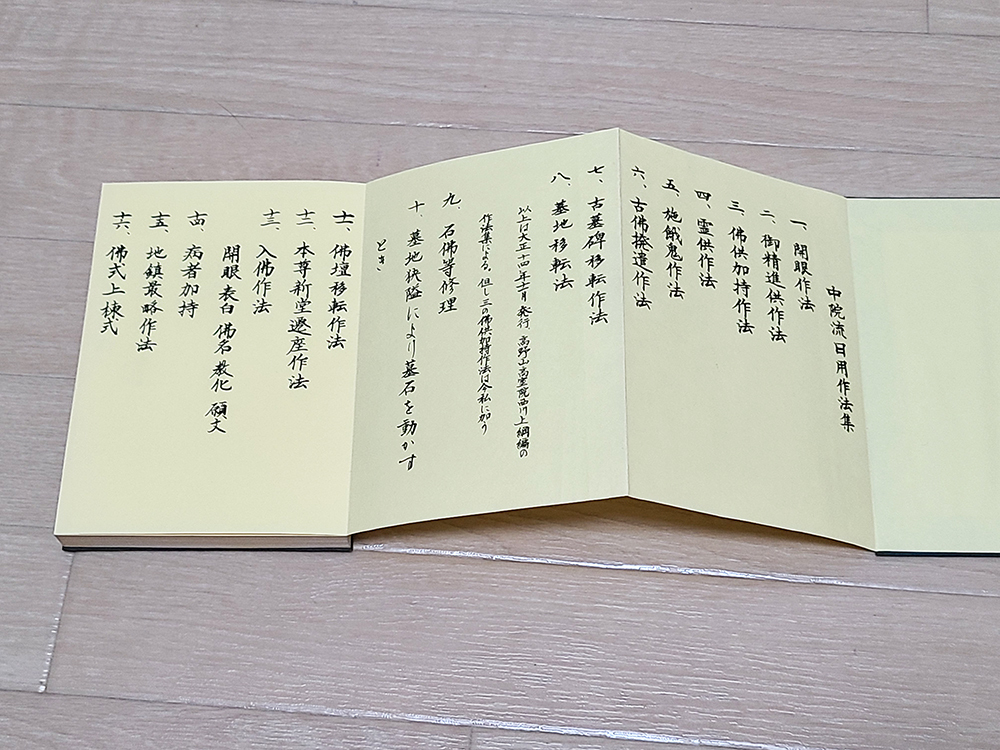 中院流日用作法集
一、開眼作法
二、御精進供作法
三、佛供加持作法
四、霊供作法
五、施餓鬼作法
六、古佛撥遣作法
七、古墓碑移転作法
八、墓地移転法
以上は大正十四年十一月発行 高野山高室院西川上綱編の
作法集による。但し三の佛供加持作法は今私に加う
九、石佛等修理
十、墓地狹隘により墓石を動かす
とき
十一、佛壇移転作法
十二、本尊新堂遷座作法
十三、入佛作法
開眼表白 佛名 教化 願文
十四、病者加持
十五、地鎮最略作法
十六、佛式上棟式